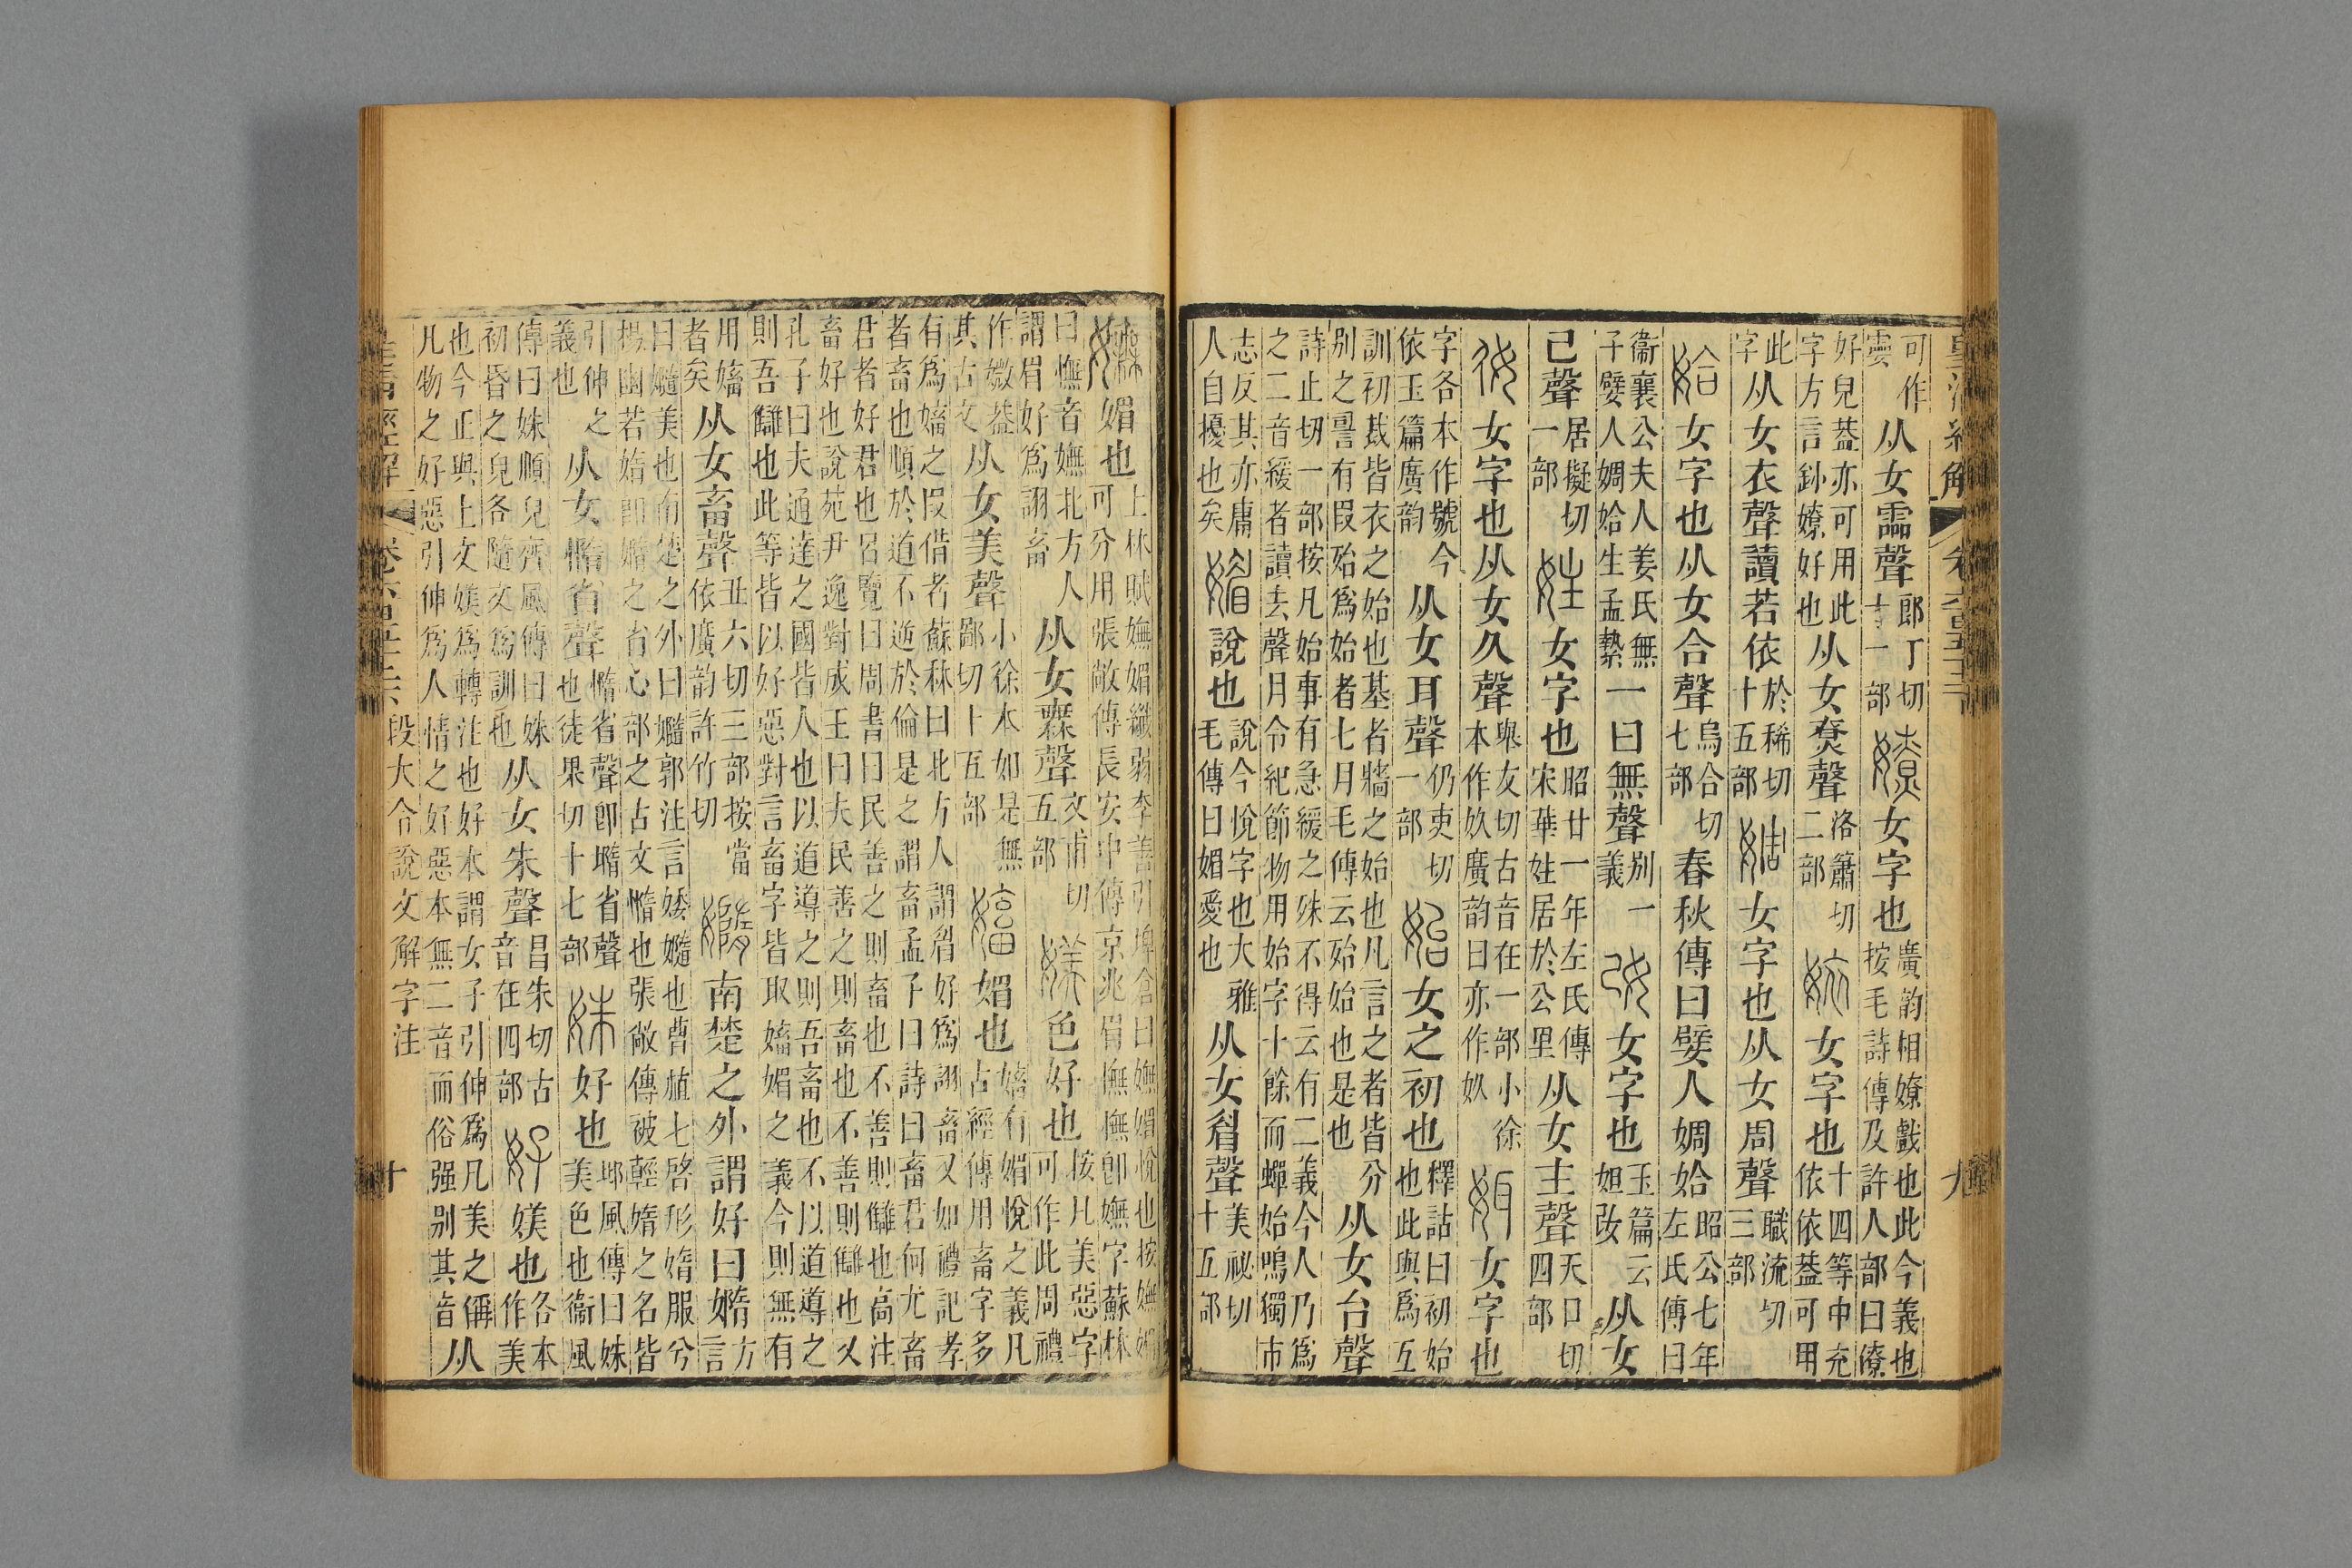 皇清經解 卷六百五十二 九
可作霝从女霝聲郎丁切十一部嫽女字也廣韵相嫽戲也此今義也按毛詩傳及許人部曰僚
好皃葢亦可用此字方言釥嫽好也从女尞聲洛蕭切二部㛄女字也十四等中充依依葢可用
此字从女衣聲讀若依於稀切十五部婤女字也从女周聲職流切三部
姶女字也从女合聲烏合切七部春秋傳曰嬖人婤姶昭公七年左氏傳曰
衞襄公夫人姜氏無子嬖人婤姶生孟縶一曰無聲别一義改女字也玉篇云妲改从女
己聲居擬切一部妵女字也昭廿一年左氏傳宋華妵居於公里从女主聲天口切四部
奺女字也从女久聲舉友切古音在一部小徐本作奺廣韵曰亦作奺㛅女字也
字各本作號今依玉篇廣韵从女耳聲仍吏切一部始女之初也釋詁曰初始也此與爲互
訓初裁皆衣之始也基者牆之始也凡言之者皆分别之䛐有叚殆爲始者七月毛傳云殆始也是也从女台聲
詩止切一部按凡始事有急緩之殊不得云有二義今人乃爲之二音緩者讀去聲月令紀節物用始字十餘而蟬始鳴獨市
志反其亦庸人自擾也矣媚說也說今悅字也大雅毛傳曰媚愛也从女睂聲美祕切十五部
嫵媚也上林賦嫵媚孅弱李善引埤倉曰嫵媚悅也按嫵媚可分用張敞傳長安中傳京兆眉憮憮卽嫵字蘇林
曰憮音嫵北方人謂眉好爲詡畜从女無聲文甫切五部媄色好也按凡美惡字可作此周禮
作媺葢其古文从女美聲小徐本如是無鄙切十五部㜅媚也㜅有媚悅之義凡古經傳用畜字多
有爲㜅之叚借者蘇林曰北方人謂眉好爲詡畜又如禮記孝者畜也順於道不逆於倫是之謂畜孟子曰詩曰畜君何尤畜
君者好君也呂覽曰周書曰民善之則畜也不善則讎也高注畜好也說苑尹逸對成王曰夫民善之則畜也不善則讎也又
孔子曰夫通達之國皆人也以道導之則吾畜也不以道導之則吾讎也此等皆以好惡對言畜字皆取㜅媚之義今則無有
用㜅者矣从女畜聲丑六切三部按當依廣韵許竹切嫷南楚之外謂好曰嫷方言
曰嫷美也南楚之外曰嫷郭注言婑嫷也曹植七啓形媠服兮揚幽若媠卽嫷之省心部之古文憜也張敞傳被輕媠之名皆
引伸之義也从女憜省聲憜省聲卽墮省聲也徒果切十七部姝好也邶風傳曰姝美色也衞風
傳曰姝順皃齊風傳曰姝初昏之皃各隨文爲訓也从女朱聲昌朱切古音在四部好媄也各本作美
也今正與上文媄爲轉注也好本謂女子引伸爲凡美之偁凡物之好惡引伸爲人情之好惡本無二音而俗强别其音从
皇清經解 段大令說文解字注 十